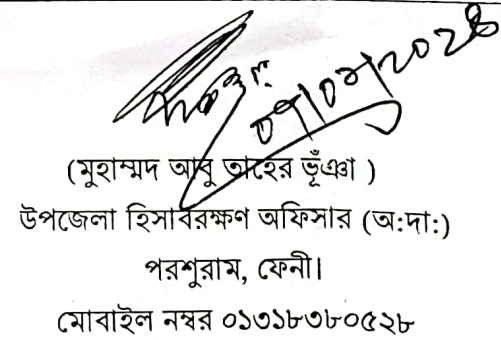 (মুহাম্মদ আবু তাহের ভূঁঞা )
উপজেলা হিসাবরক্ষণ অফিসার (অ:দা:)
পরশুরাম, ফেনী।
মোবাইল নম্বর ০১৩১৮৩৮০৫২৮